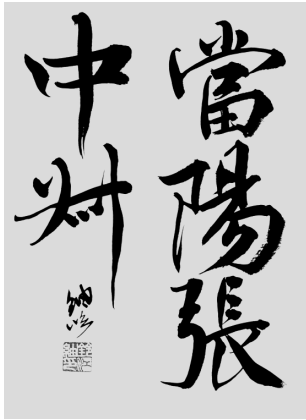 當陽張
中叔